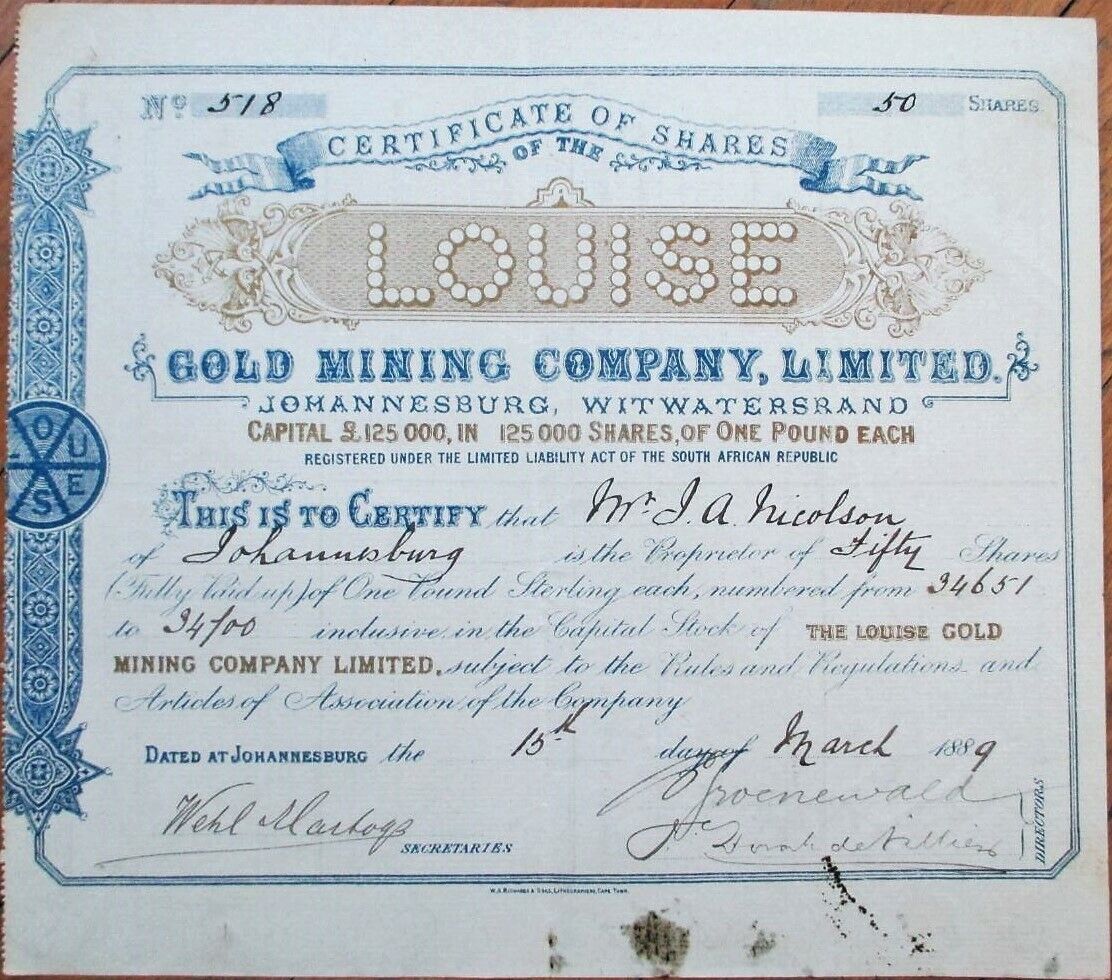 No 518 50 SHARES
CERTIFICATE OF SHARES
OF THE
LOUISE
GOLD MINING COMPANY, LIMITED.
JOHANNESBURG, WITWATERSRAND
CAPITAL £125 000, IN 125 000 SHARES, OF ONE POUND EACH
REGISTERED UNDER THE LIMITED LIABILITY ACT OF THE SOUTH AFRICAN REPUBLIC
LOUISE
THIS IS TO CERTIFY that Mr. J. A. Nicolson
of Johannesburg is the Proprietor of Fifty Shares
(Fully Paid up) of One Pound Sterling each, numbered from 34651
to 34700 inclusive in the Capital Stock of THE LOUISE GOLD
MINING COMPANY LIMITED, subject to the Rules and Regulations and
Articles of Association of the Company
DATED AT JOHANNESBURG the 15th day of March 1889
Groenewald
SECRETARIES
de Villiers
DIRECTORS
W. A. RICHARDS & SONS, LITHOGRAPHERS, CAPE TOWN.